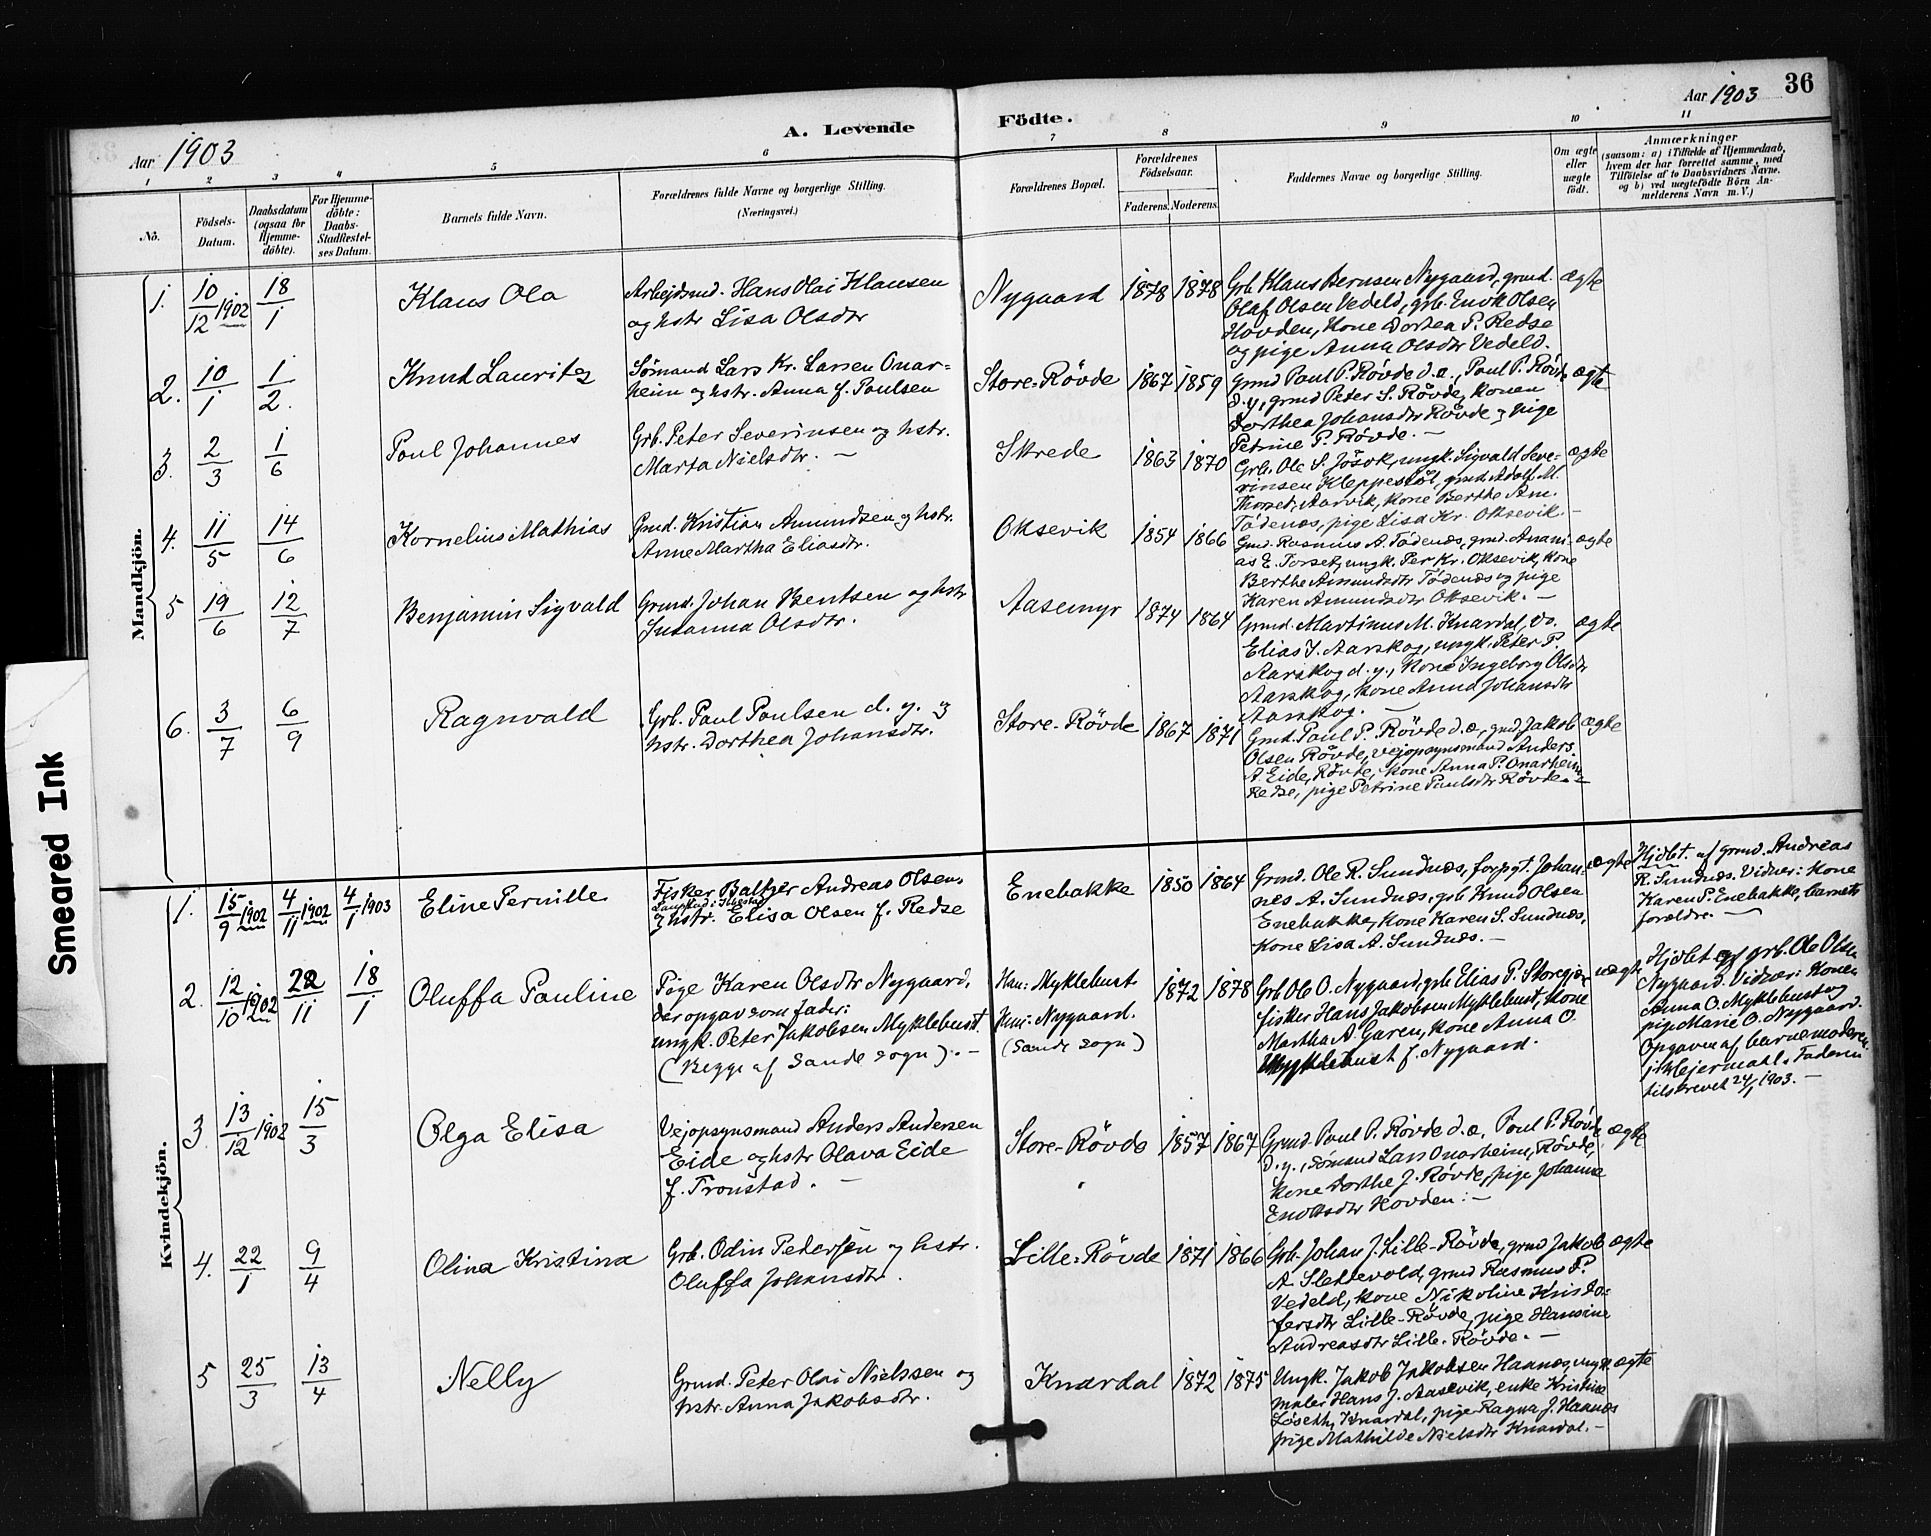 36
Aar 1903
A. Levende
Födte.
Aar 1903
1
2
3
4
5
6
7
8
9
10
11
No.
Födsels-
Datum.
Daabsdatum
(ogsaa for
Hjemme-
döbte).
For Hjemme-
döbte:
Daabs-
Stadfæstel-
ses Datum.
Barnets fulde Navn.
Forældrenes fulde Navne og borgerlige Stilling.
(Næringsvei.)
Forældrenes Bopæl.
Forældrenes
Födselsaar.
Faderens. Moderens.
Faddernes Navne og borgerlige Stilling.
Om ægte
eller
uægte
født.
Anmærkninger
(saasom: a) i Tilfælde af Hjemmedaab,
hvem der har forrettet samme, med
Tilföielse af to Daabsvidners Navne.
og b) ved uægtefödte Börn An-
melderens Navn m. V.)
Mandkjön.
1. 10/12 1902 18/1
Klaus Ola
Arbejdsmd. Hans Olai Klausen
og hstr Lisa Olsdtr
Nygaard 1878 1878
Grb. Klaus Bernsen Nygaard, grmd.
Olaf Olsen Vedeld, grb. Enok Olsen
Hovden, Kone Dorthea P. Redse
og pige Anna Olsdtr Vedeld.
ægte
2. 10/1 1/2.
Knud Lauritz
Sömand Lars Kr. Larsen Onar-
heim og hstr. Anna f. Paulsen
Store-Rövde 1867 1859
Grmd Paul P. Rövde d.æ., Paul P. Rövde
d.y., grmd Peter S. Rövde, Konen
Dorthea Johansdtr Rövde og pige
Petrine P. Rövde. –
ægte
3. 2/3 1/6
Paul Johannes
Grb. Peter Severinsen og hstr.
Marta Nielsdtr. –
Skrede 1863 1870
Grb. Ole S. Jösok, ungk. Sigvald Seve-
rinsen Kleppestöl, grmd. Adolf M.
Thorset, Aarvik, Kone Berthe Am.
Tödenæs, pige Lisa Kr. Oksevik. –
ægte
4. 11/5 14/6
Kornelius Mathias
Grmd. Kristian Amundsen og hstr.
Anne Martha Eliasdtr.
Oksevik 1854 1866
Grmd. Rasmus A. Tödenæs, grmd. Anani-
as E. Torset, ungk. Per Kr. Oksevik, Kone
Berthe Amundsdtr Tödenæs og pige
Karen Amundsdtr Oksevik. –
ægte
5 19/6 12/7
Benjamin Sigvald
Grmd. Johan Bentsen og hstr
Susanna Olsdtr.
Aasemyr 1874 1864
Grmd. Martinus M. Knardal, do.
Elias I. Aarskog, ungk. Peter P.
Aarskog d.y., Kone Ingeborg Olsdtr
Aarskog, Kone Anna Johansdtr
Aarskog. –
ægte
6. 3/7 6/9
Ragnvald
Grb. Paul Paulsen d.y. og
hstr. Dorthea Johansdtr.
Store-Rövde 1867 1871
Grmd. Paul P. Rövde d.æ, grmd Jakob
Olsen Rövde, vejopsynsmand Anders
A. Eide, Rövde, Kone Anna P. Onarheim
Redse, pige Petrine Paulsdtr Rövde. –
ægte
Kvindekjön.
1. 15/9 1902 4/11 1902 4/1 1903
Eline Pernille
Fisker Baltzer Andreas Olsen,
og hstr. Elisa Olsen f. Redse
Enebakke 1850 1864
Grmd. Ole R. Sundnæs, forpgt. Johan-
nes A. Sundnæs, grb Knud Olsen
Enebakke, Kone Karen S. Sundnæs,
Kone Lisa A. Sundnæs. –
ægte
Hjdbt. af grmd. Andreas
R. Sundnæs. Vidner: Kone
Karen P. Enebakke, barnets
forældre. –
2. 12/10 1902 22/11 18/1
Oluffa Pauline
Pige Karen Olsdtr Nygaard,
der opgav som fader:
ungk. Peter Jakobsen Myklebust.
(Begge af Sande sogn). –
Han: Myklebust
Hun: Nygaard.
(Sande sogn)
1872 1878
Grb Ole O. Nygaard, grb Elias P. Storegjær
fisker Hans Jakobsen Myklebust, Kone
Martha A. Garen, Kone Anna O.
Myklebust f. Nygaard.
uægte
Hjdbt af grb. Ole Olsen
Nygaard. Vidner: Konen
Anna O. Myklebust og
pige Marie O. Nygaard.
Opgaven af barnemoderen
Faderen
tilskrevet 24/1 1903. –
3. 13/12 1902 15/3
Olga Elisa
Vejopsynsmand Anders Andersen
Eide og hstr Olava Eide
f. Tronstad. –
Store-Rövde 1857 1867
Grmd. Paul P. Rövde d.æ, Paul P. Rövde
d.y., sömand Lars Onarheim, Rövde,
Kone Dorthe J. Rövde, pige Johanna
Enoksdtr Hovden: –
ægte
4. 22/1 9/4
Olina Kristina
Grb. Odin Pedersen og hstr.
Oluffa Johansdtr.
Lille-Rövde 1871 1866
Grb. Johan J. Lille-Rövde, grmd Jakob
A. Slettevold, grmd Rasmus P.
Vedeld, Kone Nikoline Kristo-
fersdtr Lille-Rövde, pige Hansine
Andreasdtr Lille-Rövde. –
ægte
5 25/3 13/4
Nelly
Grmd. Peter Olai Nielssen og
hstr. Anna Jakobsdtr.
Knardal 1872 1875
Ungk. Jakob Jakobsen Haanæs, ungk
maler Hans J. Aasevik, enke Kristine
Löseth, Knardal, pige Ragna J. Haanæs
pige Mathilde Nielsdtr Knardal. –
ægte
Smeared Ink